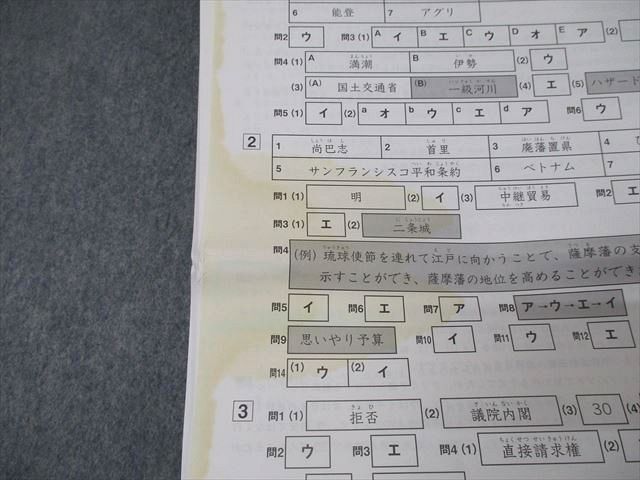 6 能登 7 アグリ
問2 ウ 問3 (1) A イ B エ C ウ D オ E ア (2)
問4 (1) A 満潮 B 伊勢 (2) ウ
(3) (A) 国土交通省 (B) 一級河川 (4) エ (5) ハザード
問5 (1) イ (2) a オ b ウ c エ d ア 問6 ウ
2 1 尚巴志 2 首里 3 廃藩置県 4
5 サンフランシスコ平和条約 6 ベトナム 7
問1 (1) 明 (2) イ (3) 中継貿易 問2 エ
問3 (1) エ (2) 二条城
問4 (例) 琉球使節を連れて江戸に向かうことで、薩摩藩の支
示すことができ、薩摩藩の地位を高めることができ
問5 イ 問6 エ 問7 ア 問8 ア→ウ→エ→イ
問9 思いやり予算 問10 イ 問11 ウ 問12 エ
問14 (1) ウ (2) イ
3 問1 (1) 拒否 (2) 議院内閣 (3) 30 (4)
問2 ウ 問3 エ 問4 (1) 直接請求権 (2)